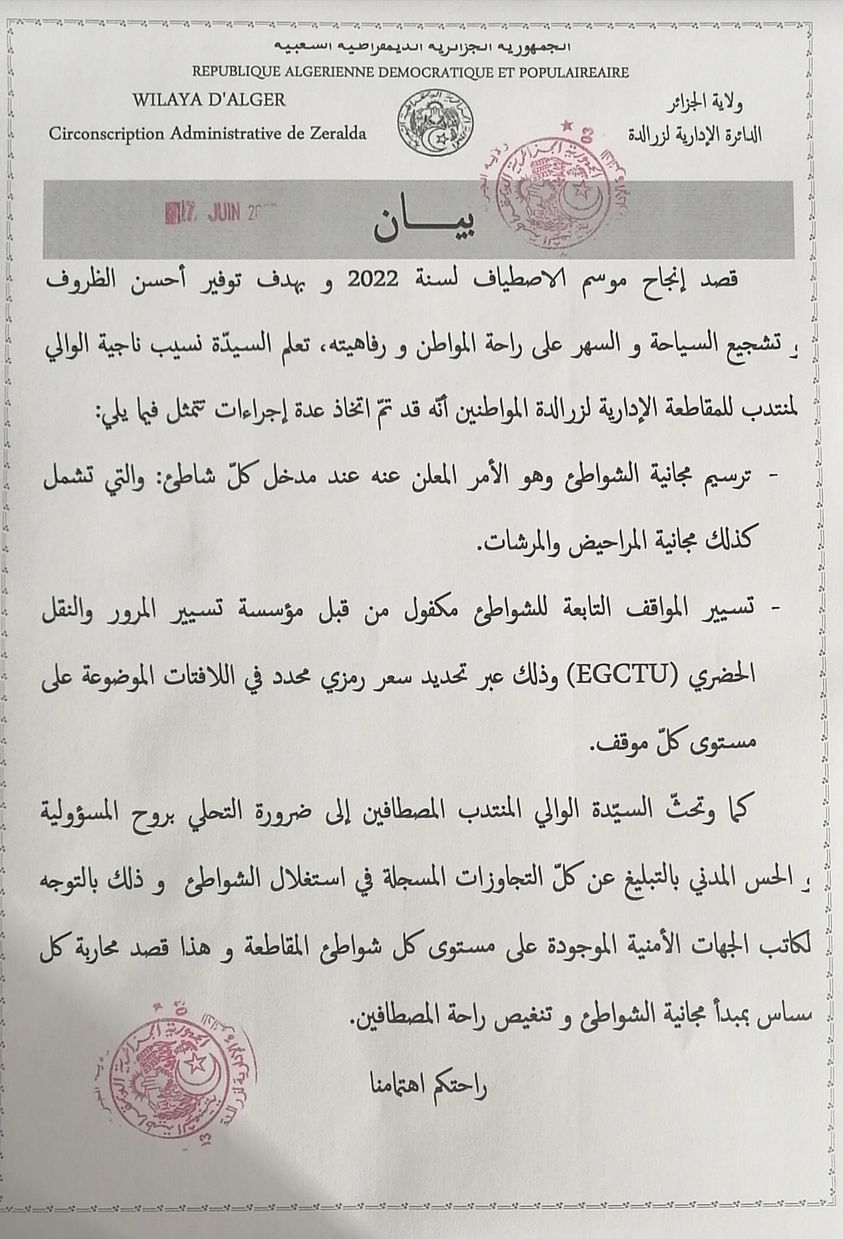 الجمهورية الجزائرية الديمقراطية الشعبية
REPUBLIQUE ALGERIENNE DEMOCRATIQUE ET POPULAIREAIRE
WILAYA D'ALGER
ولاية الجزائر
Circonscription Administrative de Zeralda
الدائرة الإدارية لزرالدة
JUIN
بيـــان
قصد إنجاح موسم الاصطياف لسنة 2022 و بهدف توفير أحسن الظروف
و تشجيع السياحة و السهر على راحة المواطن و رفاهيته، تعلم السيدّة نسيب ناجية الوالي
لمنتدب للمقاطعة الإدارية لزرالدة المواطنين أنّه قد تمّ اتخاذ عدة إجراءات تتمثل فيما يلي:
- ترسيم مجانية الشواطئ وهو الأمر المعلن عنه عند مدخل كلّ شاطئ: والتي تشمل
كذلك مجانية المراحيض والمرشات.
- تسيير المواقف التابعة للشواطئ مكفول من قبل مؤسسة تسيير المرور والنقل
الحضري (EGCTU) وذلك عبر تحديد سعر رمزي محدد في اللافتات الموضوعة على
مستوى كلّ موقف.
كما وتحثّ السيّدة الوالي المنتدب المصطافين إلى ضرورة التحلي بروح المسؤولية
و الحس المدني بالتبليغ عن كلّ التجاوزات المسجلة في استغلال الشواطئ و ذلك بالتوجه
لكاتب الجهات الأمنية الموجودة على مستوى كل شواطئ المقاطعة و هذا قصد محاربة كل
مساس بمبدأ مجانية الشواطئ و تنغيص راحة المصطافين.
راحتكم اهتمامنا